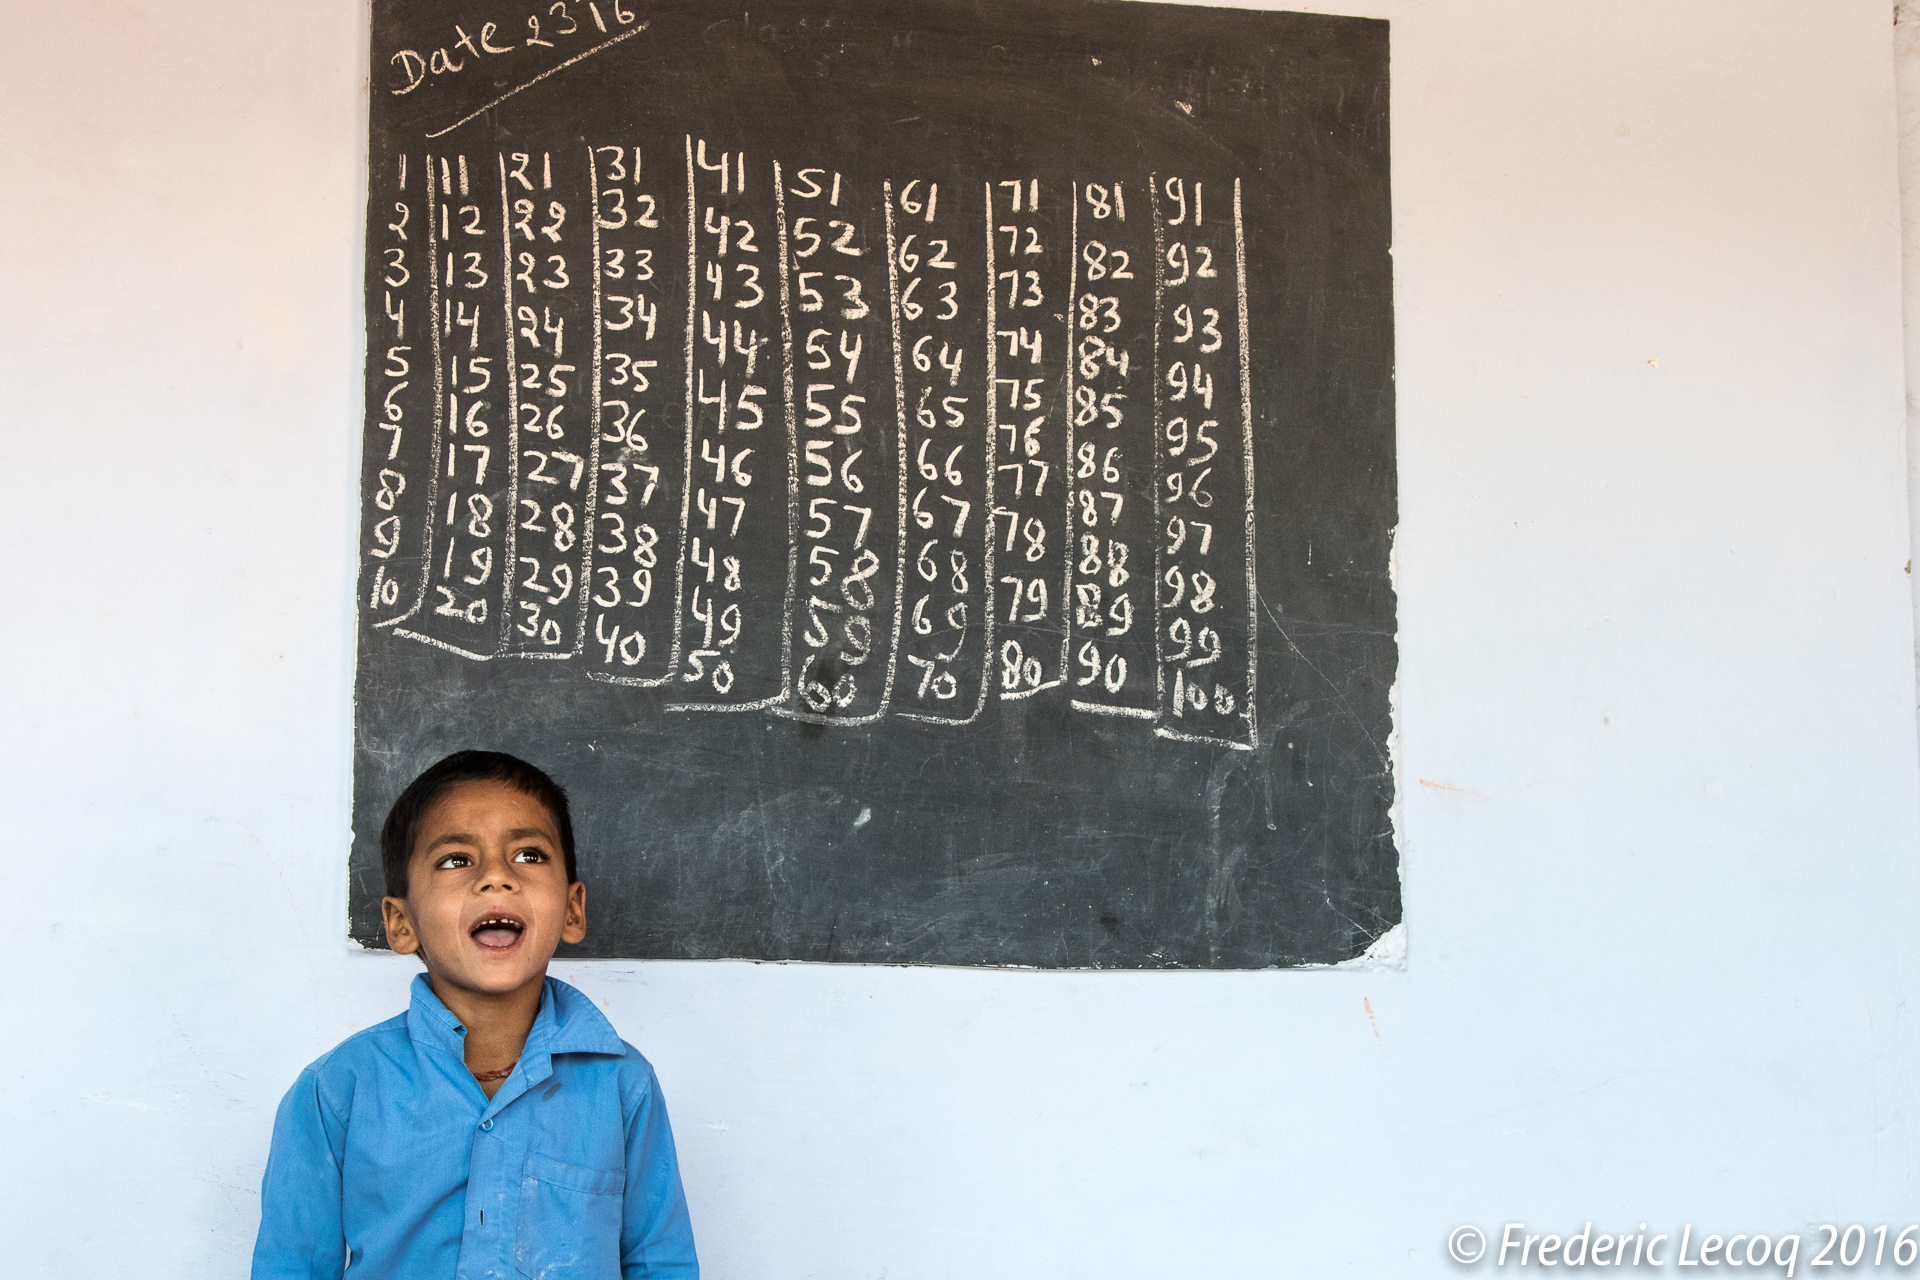 Date 2316
1 11 21 31 41 51 61 71 81 91
2 12 22 32 42 52 62 72 82 92
3 13 23 33 43 53 63 73 83 93
4 14 24 34 44 54 64 74 84 94
5 15 25 35 45 55 65 75 85 95
6 16 26 36 46 56 66 76 86 96
7 17 27 37 47 57 67 77 87 97
8 18 28 38 48 58 68 78 88 98
9 19 29 39 49 59 69 79 89 99
10 20 30 40 50 60 70 80 90 100
© Frederic Lecoq 2016